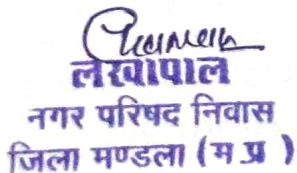 लेखापाल
नगर परिषद निवास
जिला मण्डला (म प्र )